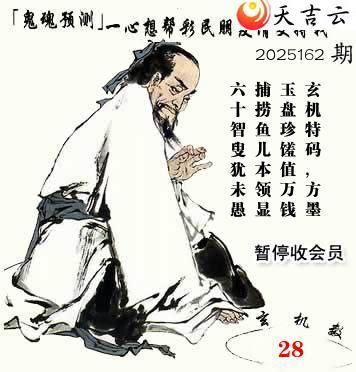 天吉云
「鬼魂预测」一心想帮彩民朋
2025162 期
玄机特码，方墨
玉盘珍馐值万钱
捕捞鱼儿本领显
六十智叟犹未愚
暂停收会员
玄机数
28